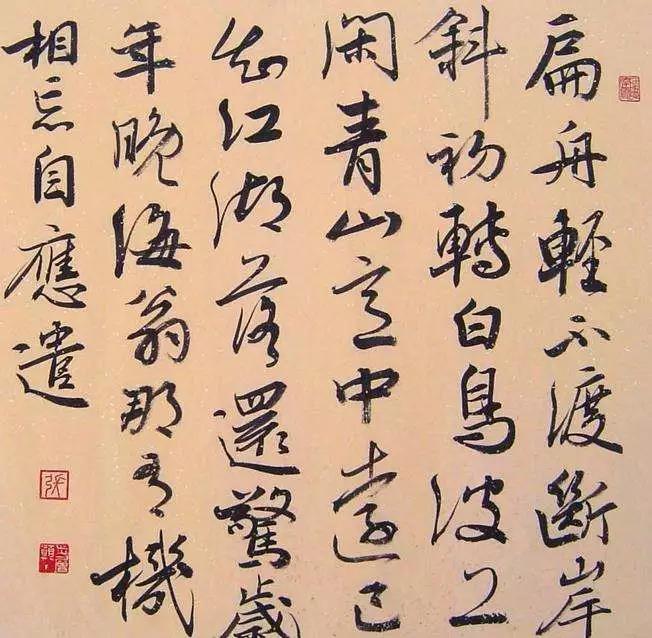 扁舟輕不渡斷岸
斜初轉白鳥波上
閑青山意中遠已
知江湖落還驚歲
年晚海翁那有機
相忘自應遣
張